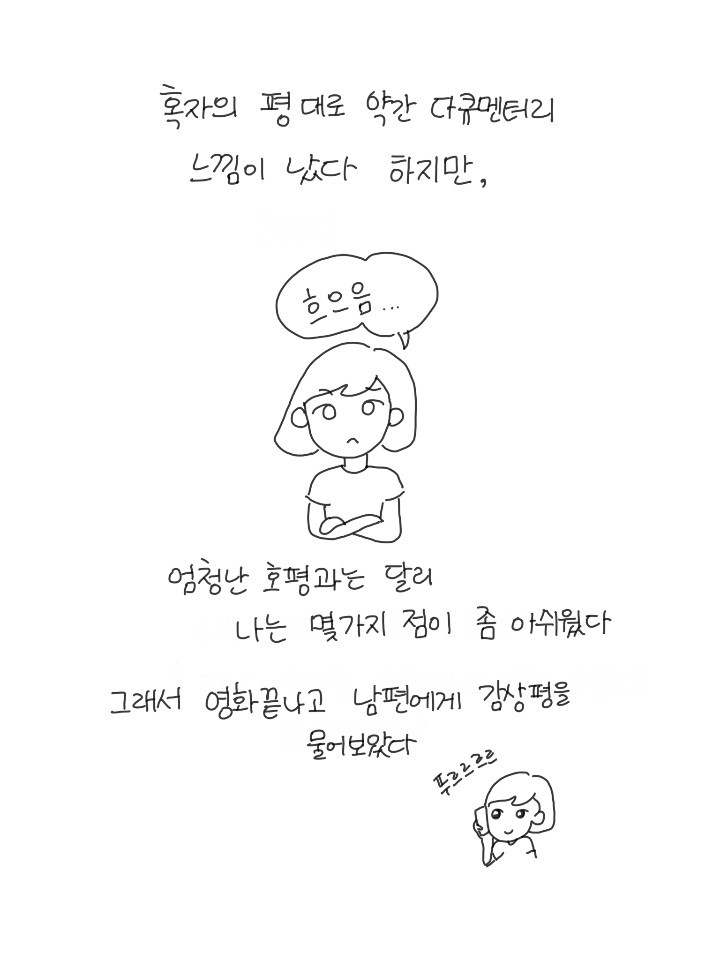 혹자의 평대로 약간 다큐멘터리
느낌이 났다 하지만,
흐으음...
엄청난 호평과는 달리
나는 몇가지 점이 좀 아쉬웠다
그래서 영화끝나고 남편에게 감상평을
물어보았다
푸르르르르